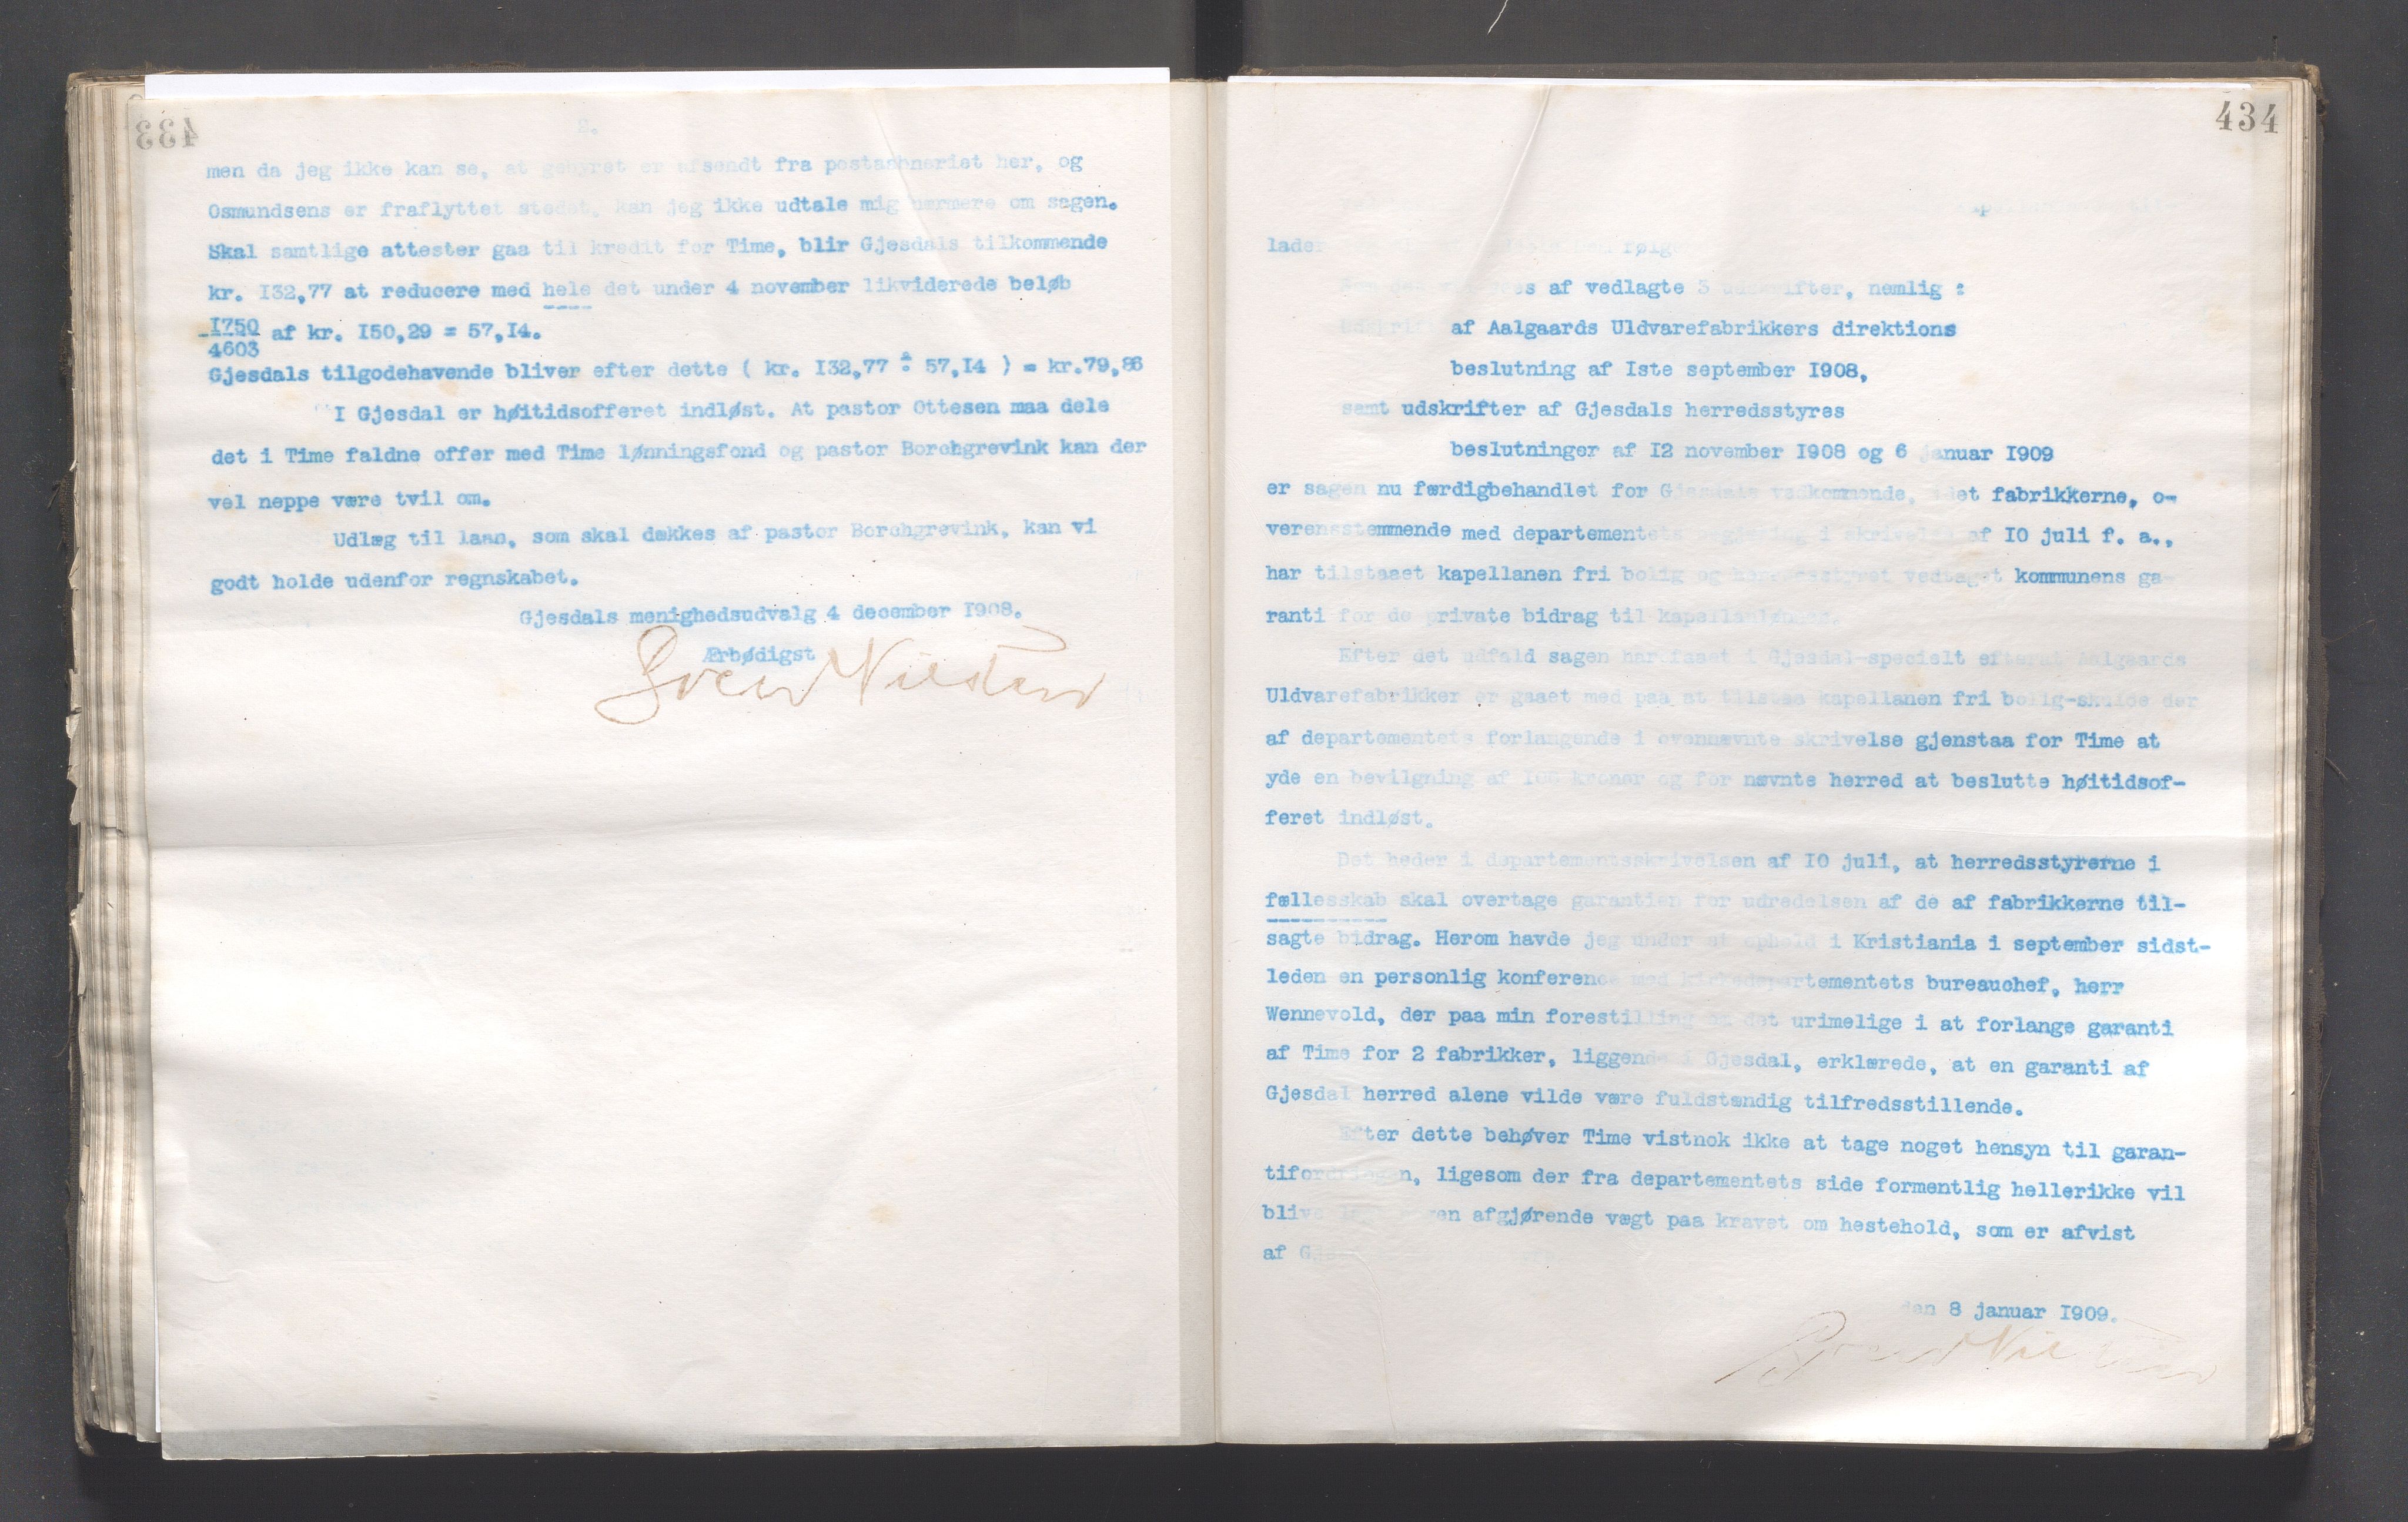 433
2.
men da jeg ikke kan se, at gebyret er afsendt fra postaabneriet her, og
Osmundsens er fraflyttet stedet, kan jeg ikke udtale mig nærmere om sagen.
Skal samtlige attester gaa til kredit for Time, blir Gjesdals tilkommende
kr. I32,77 at reducere med hele det under 4 november likviderede beløb
1750
4603 af kr. I50,29 = 57,I4.
Gjesdals tilgodehavende bliver efter dette ( kr. I32,77 ÷ 57,I4 ) = kr.79,86
I Gjesdal er høitidsofferet indløst. At pastor Ottesen maa dele
det i Time faldne offer med Time lønningsfond og pastor Borchgrevink kan der
vel neppe være tvil om.
Udlæg til laan, som skal dækkes af pastor Borchgrevink, kan vi
godt holde udenfor regnskabet.
Gjesdals menighedsudvalg 4 december I908.
Ærbødigst
434
lader følg
af vedlagte 3 udskrifter, nemlig :
Udskrift af Aalgaards Uldvarefabrikkers direktions
beslutning af Iste september I908,
samt udskrifter af Gjesdals herredsstyres
beslutninger af I2 november I908 og 6 januar I909
er sagen nu færdigbehandlet for Gjesdals vedkommende, idet fabrikkerne, o-
verensstemmende med departementets begjæring i skrivelse af I0 juli f. a.,
har tilstaaet kapellanen fri bolig og herredsstyret vedtaget kommunens ga-
ranti for de private bidrag til kapellanlønnen.
Efter det udfald sagen har faaet i Gjesdal-specielt efterat Aalgaards
Uldvarefabrikker er gaaet med paa at tilstaa kapellanen fri bolig-skulde der
af departementets forlangende i ovennævnte skrivelse gjenstaa for Time at
yde en bevilgning af kroner og for nævnte herred at beslutte høitidsof-
feret indløst.
Det heder i departementsskrivelsen af I0 juli, at herredsstyrerne i
fællesskab skal overtage garantien for udredelsen af de af fabrikkerne til-
sagte bidrag. Herom havde jeg under et ophold i Kristiania i september sidst-
leden en personlig konference med kirkedepartementets bureauchef, herr
Wennevold, der paa min forestilling om det urimelige i at forlange garanti
af Time for 2 fabrikker, liggende i Gjesdal, erklærede, at en garanti af
Gjesdal herred alene vilde være fuldstændig tilfredsstillende.
Efter dette behøver Time vistnok ikke at tage noget hensyn til garan-
tifordringen, ligesom der fra departementets side formentlig hellerikke vil
blive afgjørende vægt paa kravet om hestehold, som er afvist
af
den 8 januar I909.